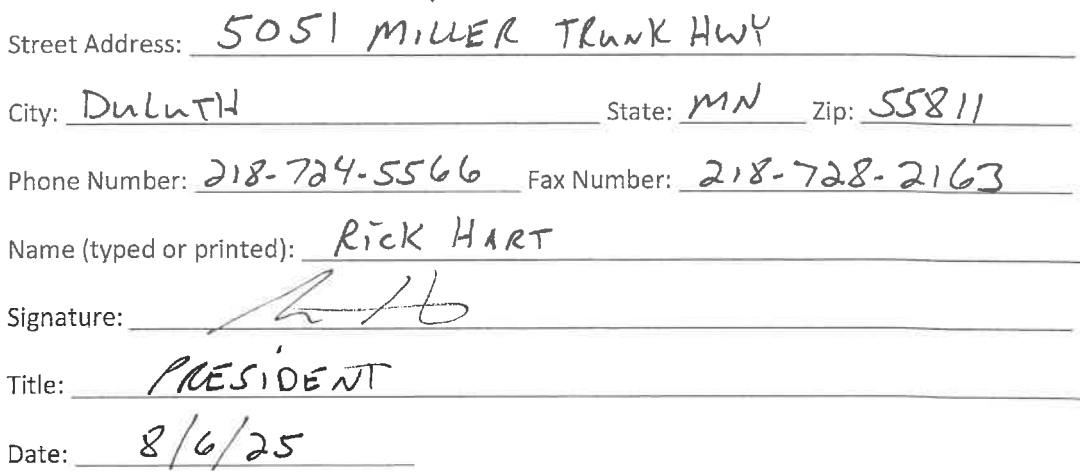 Street Address: 5051 MILLER TRUNK HWY
City: DULUTH State: MN Zip: 55811
Phone Number: 218-724-5566 Fax Number: 218-728-2163
Name (typed or printed): RICK HART
Signature:
Title: PRESIDENT
Date: 8/6/25